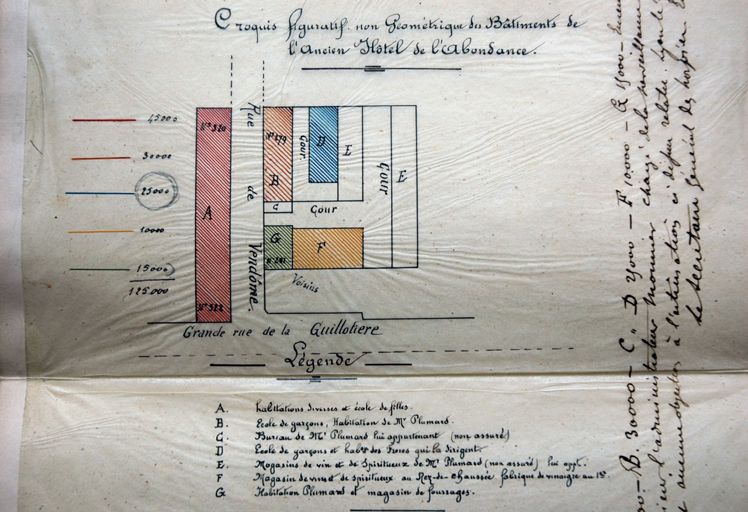 Croquis figuratif non Géométrique des Bâtiments de
l'Ancien Hôtel de l'Abondance.
45000
30000
25000
10000
15000
125.000
N° 320
A
N° 322
Rue de Vendôme.
N° 279
B
C
Cour
D
E
Cour
Cour
E
G
N° 281
F
Voisins
Grande rue de la Guillotière
Légende
A. habitations diverses et école de filles.
B. Ecole de garçons, Habitation de Mr Plumard.
C. Bureau de Mr Plumard lui appartenant (non assuré)
D Ecole de garçons et habon des Frères qui la dirigent.
E. Magasins de vin et de Spiritueux de Mr Plumard (non assuré) lui appt.
F Magasin de vins et de spiritueux au Rez-de-Chaussée fabrique de vinaigre au 1er
G Habitation Plumard et magasin de fourrages.
B. 30000 – C " D 25000 – F 10000 – G 15000 –
l'administrateur Monnier chargé de la surveillance
à l'estimation ci-dessus relatée
le Secrétaire Général des hospices